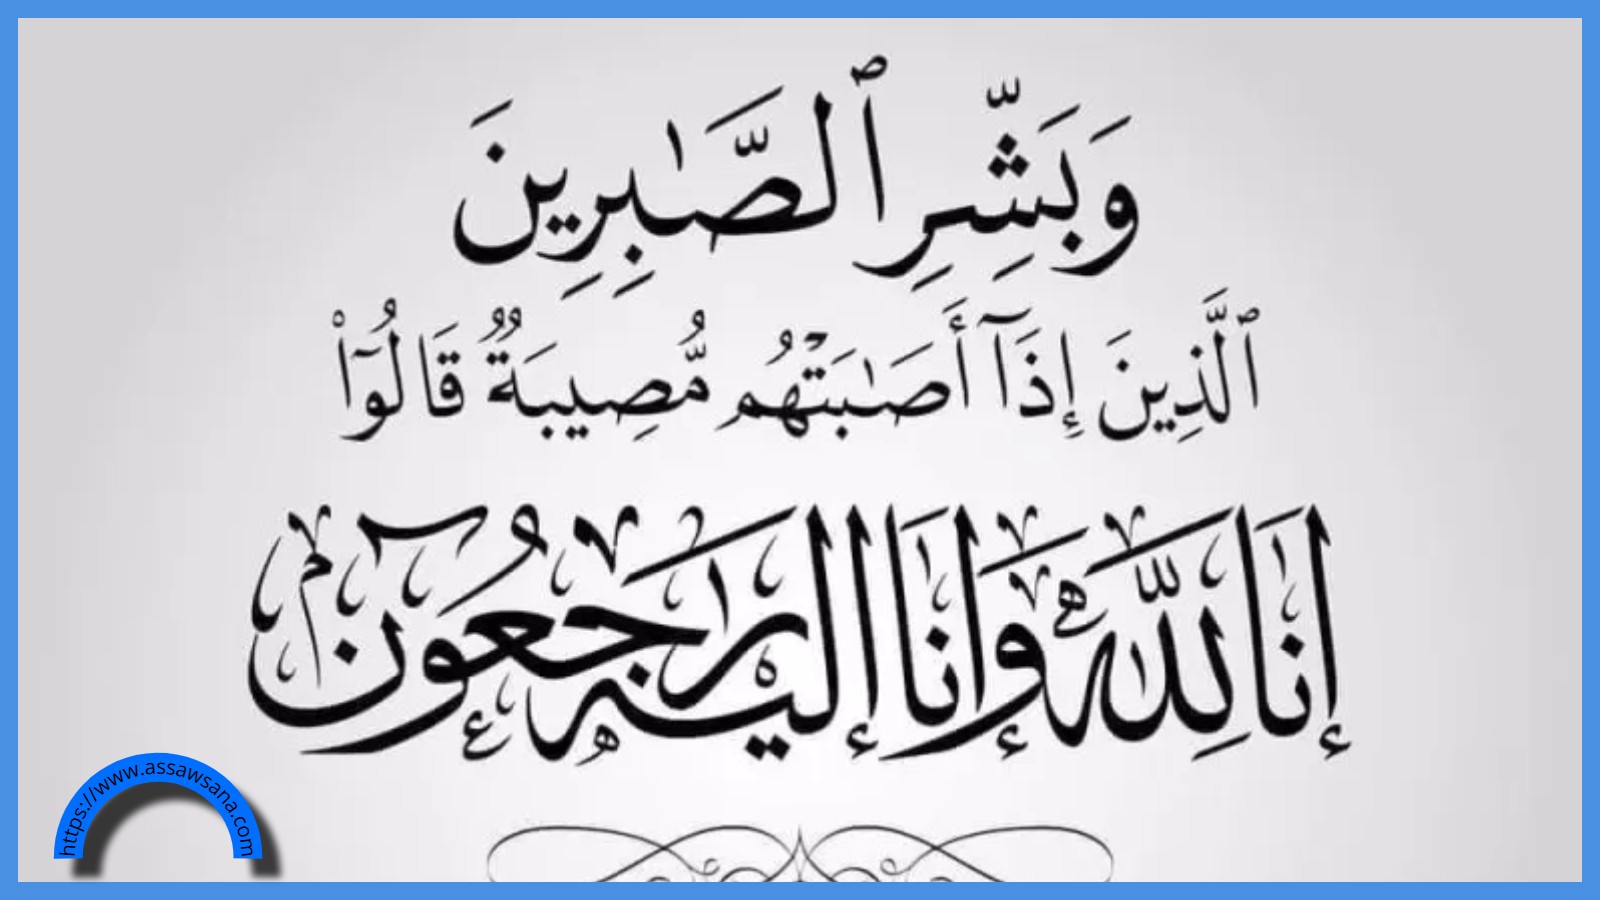 وَبَشِّرِ ٱلصَّـٰبِرِينَ
ٱلَّذِينَ إِذَآ أَصَـٰبَتْهُم مُّصِيبَةٌ قَالُوٓا۟
إنا لله وإنا إليه راجعون
https://www.assawsana.com